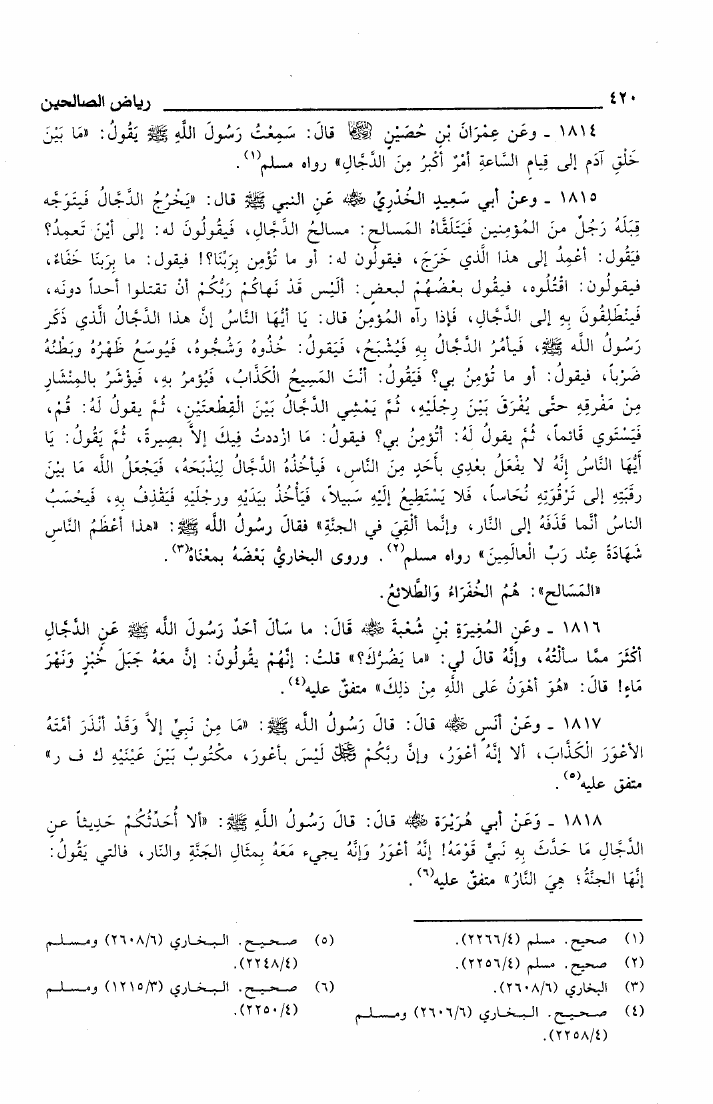 ٤٢٠ رياض الصالحين
١٨١٤ ـ وعَن عِمْرَانَ بْنِ حُصَيْنٍ قالَ: سَمِعْتُ رَسُولَ اللَّهِ ﷺ يَقُولُ: «مَا بَيْنَ
خَلْقِ آدَم إلى قِيامِ السَّاعةِ أمْرٌ أكْبرُ مِنَ الدَّجَّالِ» رواه مسلم(١).
١٨١٥ ـ وعنْ أبي سَعِيدٍ الخُدْرِيِّ ﷺ عَنِ النبي ﷺ قال: «يَخْرُجُ الدَّجَّالُ فَيَتَوَجَّه
قِبَلَهُ رَجُلٌ منَ المُؤمِنين فَيَتَلَقَّاهُ المَسالح: مسالحُ الدَّجَّالِ، فَيقُولُونَ له: إلى أيْنَ تَعمِدُ؟
فيَقُول: أعْمِدُ إلى هذا الَّذي خَرَجَ، فيقولُون له: أو ما تُؤْمِن بِرَبِّنَا؟! فيقول: ما بِرَبنَا خَفَاء،
فيقولون: اقْتُلُوه، فيقُول بعْضُهُمْ لبعضٍ: ألَيْس قَدْ نَهاكُمْ رَبُّكُمْ أنْ تقتلوا أحداً دونَه،
فَينْطَلِقُونَ بِهِ إلى الدَّجَّالِ، فَإذا رآه المُؤْمِنُ قال: يَا أيُّهَا النَّاسُ إنَّ هذا الدَّجَّالُ الَّذي ذَكَر
رَسُولُ اللَّه ﷺ، فَيأمُرُ الدَّجَّالُ بِهِ فَيُشْبَحُ، فَيَقولُ: خُذُوهُ وَشُجُّوهُ، فَيُوسَعُ ظَهْرُهُ وبَطْنُهُ
ضَرْباً، فيقولُ: أو ما تُؤمِنُ بي؟ فَيَقُولُ: أنْتَ المَسِيحُ الكَذَّابُ، فَيُؤمَرُ بهِ، فَيؤْشَرُ بالمِنْشَارِ
مِنْ مَفْرِقِهِ حتَّى يُفْرَقَ بَيْنَ رِجْلَيْهِ، ثُمَّ يَمْشِي الدَّجَّالُ بَيْنَ القِطْعتَيْنِ، ثُمَّ يقولُ لَهُ: قُمْ،
فَيَسْتَوي قَائماً، ثُمَّ يقولُ لَهُ: أتُؤمِنُ بي؟ فيقولُ: مَا ازْددتُ فِيكَ إلاَّ بصِيرةً، ثُمَّ يَقُولُ: يَا
أيُّهَا النَّاسُ إنَّهُ لا يفْعَلُ بعْدِي بأحَدٍ مِنَ النَّاسِ، فَيأخُذُهُ الدَّجَّالُ لِيَذْبَحَهُ، فَيَجْعَلُ اللَّه مَا بيْنَ
رقَبَتِهِ إلى تَرْقُوَتِهِ نُحَاساً، فَلا يَسْتَطِيعُ إلَيْهِ سَبيلاً، فَيَأْخُذُ بيَدَيْهِ ورجْلَيْهِ فَيَقْذِفُ بِهِ، فَيحْسَبُ
الناسُ أنَّما قَذَفَهُ إلى النَّار، وإنَّما ألْقِيَ في الجنَّةِ» فقالَ رسُولُ اللَّه ﷺ: «هذا أعْظَمُ النَّاسِ
شَهَادَةً عِنْد رَبِّ الْعالَمِينَ» رواه مسلم(٢). وروى البخاريُّ بَعْضَهُ بمعْنَاهُ(٣).
«المَسَالح»: هُمُ الخُفَرَاءُ وَالطَّلائعُ.
١٨١٦ ـ وعَنِ المُغِيرَةِ بْنِ شُعْبةَ قَالَ: ما سَألَ أحَدٌ رَسُولَ اللَّه ﷺ عَنِ الدَّجَّالِ
أكْثَرَ ممَّا سألْتُهُ، وإنَّهُ قالَ لي: «ما يَضُرُّكَ؟» قلتُ: إنَّهُمْ يقُولُونَ: إنَّ معَهُ جَبَلَ خُبْزٍ وَنَهْرَ
مَاءٍ! قالَ: «هُوَ أهْوَنُ عَلى اللَّهِ مِنْ ذلِكَ» متفقٌ عليه(٤).
١٨١٧ ـ وعَنْ أنَسٍ قالَ: قالَ رَسُولُ اللَّه ﷺ: «مَا مِنْ نَبِيٍّ إلاَّ وَقَدْ أنْذَرَ أمَّتَهُ
الأعْوَرَ الْكَذَّابَ، ألا إنَّهُ أعْوَرُ، وإنَّ ربَّكُمْ لَيْسَ بأعْورَ، مكْتُوبٌ بَيْنَ عَيْنَيْهِ ك ف ر»
متفق عليه(٥).
١٨١٨ ـ وَعَنْ أبي هُرَيْرَةَ قالَ: قالَ رَسُولُ اللَّهِ ﷺ: «ألا أُحَدِّثُكُمْ حَدِيثاً عنِ
الدَّجَّالِ مَا حَدَّثَ بِهِ نَبيٌّ قَوْمَهُ! إنَّهُ أعْوَرُ وَإنَّهُ يجيءُ مَعَهُ بِمِثَالِ الجَنَّةِ والنَّار، فالتي يَقُولُ:
إنَّهَا الجَنَّةُ؛ هِيَ النَّارُ» متفقٌ عليه(٦).
(١) صحيح. مسلم (٢٢٦٦/٤).
(٢) صحيح. مسلم (٢٢٥٦/٤).
(٣) البخاري (٢٦٠٨/٦).
(٤) صحيح. البخاري (٢٦٠٦/٦) ومسلم
(٢٢٥٨/٤).
(٥) صحيح. البخاري (٢٦٠٨/٦) ومسلم
(٢٢٤٨/٤).
(٦) صحيح. البخاري (١٢١٥/٣) ومسلم
(٢٢٥٠/٤).